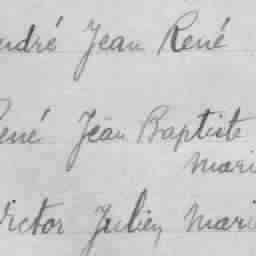 André Jean René
René Jean Baptiste
Mari
Victor Julien Marie